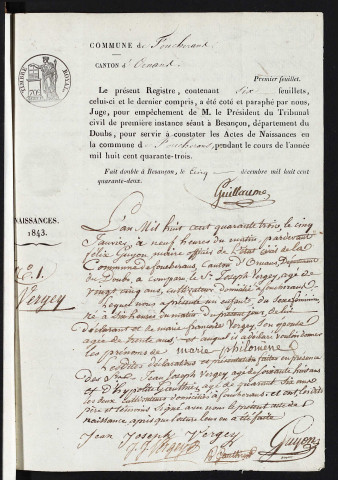 TIMBRE ROYAL
COMMUNE de Foucherans
CANTON d'Ornans
Premier feuillet.
Le présent Registre, contenant six feuillets,
celui-ci et le dernier compris, a été coté et paraphé par nous,
Juge, pour empêchement de M. le Président du Tribunal
civil de première instance séant à Besançon, département du
Doubs, pour servir à constater les Actes de Naissances en
la commune de Foucherans, pendant le cours de l'année
mil huit cent quarante-trois.
Fait double à Besançon, le cinq décembre mil huit cent
quarante-deux.
Guillaume
NAISSANCES.
1843.
N. 1
Vergey
L'an Mil huit cent quarante trois, le cinq
Janvier à neuf heures du matin, pardevant
félix Guyon, maire officier de l'Etat Civil de la
Commune de foucherans, Canton d'Ornans, Département
du Doubs, a comparu le Sr Joseph Vergey, agé de
vingt cinq ans, cultivateur domicilié à foucherans
lequel nous a présenté un enfant du sexe féminin
né à six heures du matin de ce présent jour, de lui
déclarant et de marie françoise Vergey, son epouse
agée de trente ans et auquel il a déclaré vouloir donner
les prénoms de marie philomène
les dites déclarations et présentation faites en présence
des Srs Jean Joseph Vergey, agé de soixante ans
et d'hyppolite Gauthier, agé de quarante ans
les deux cultivateurs domiciliés à foucherans, et ont les dits
père et témoins Signé avec nous le présent acte de
naissance après que lecture leur en a été faite
Jean Joseph Vergey
J J Vergey
Guyon